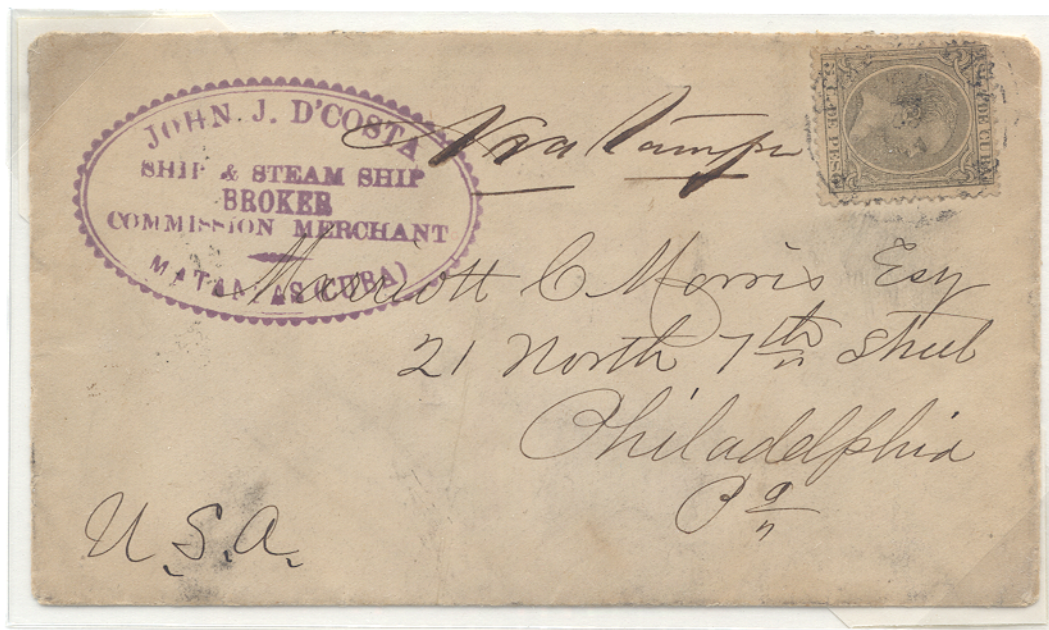 JOHN. J. D'COSTA
SHIP & STEAM SHIP
BROKER
COMMISSION MERCHANT
MATANZAS (CUBA)
Via Tampa
DE CUBA
5 C. DE PESO
Marriott C Morris Esq
21 North 7th Street
Philadelphia
Pa
U.S.A.